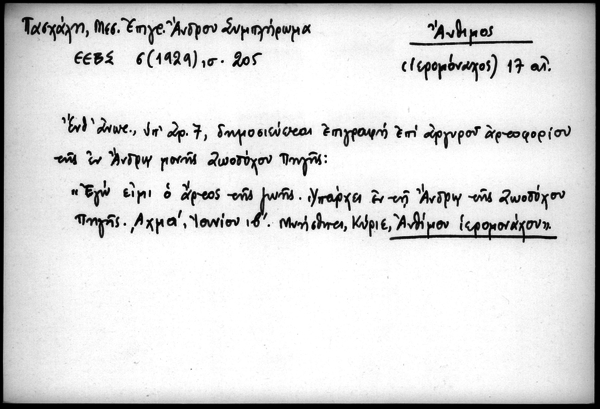 Πασχάλη, Μεσ. Ἐπιγρ. Ἄνδρου Συμπλήρωμα
Ἄνθιμος
ΕΕΒΣ 6(1929), σ. 205
(ἱερομόναχος) 17 αἰ.
Ἐνθ' ἀνωτ., ὑπ' ἀρ. 7, δημοσιεύεται ἐπιγραφή ἐπί ἀργυροῦ ἀρτοφορίου
τῆς ἐν Ἄνδρῳ μονῆς Ζωοδόχου Πηγῆς:
"Ἐγώ εἰμι ὁ ἄρτος τῆς ζωῆς. Ὑπάρχει ἐν τῇ Ἄνδρῳ τῆς Ζωοδόχου
Πηγῆς. ͵αχμα', Ἰουνίου ιβ'. Μνήσθητι, Κύριε, Ἀνθίμου ἱερομονάχου".